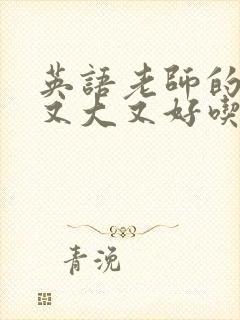 英語老師的
又大又好喫
青浼